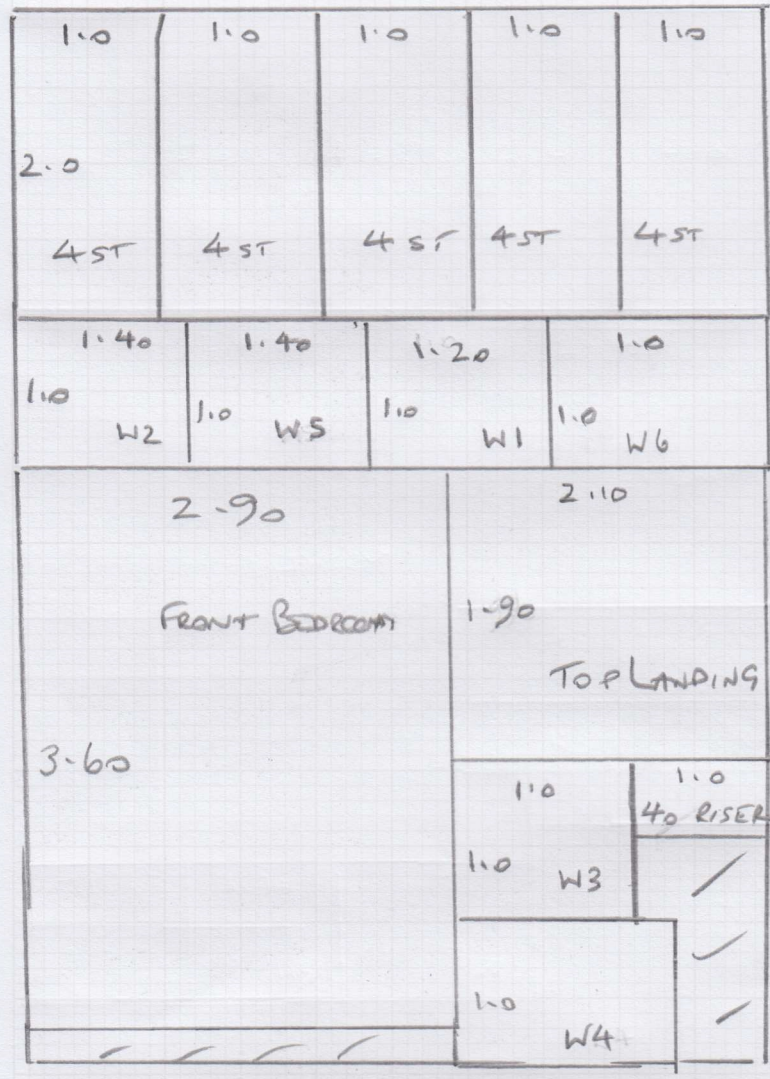 1.0 1.0 1.0 1.0 1.0
2.0
4 ST 4 ST 4 ST 4 ST 4 ST
1.40 1.40 1.20 1.0
1.0 1.0 1.0 1.0
W2 W5 W1 W6
2.90 2.10
FRONT BEDROOM 1.90
TOP LANDING
3.60
1.0 1.0
40 RISER
1.0 W3
1.0
W4